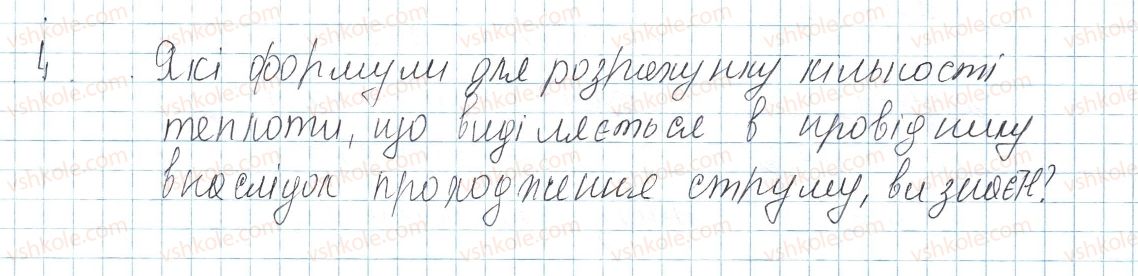 4. Які формули для розрахунку кількості
теплоти, що виділяється в провіднику
внаслідок проходження струму, ви знаєте?
vshkole.com